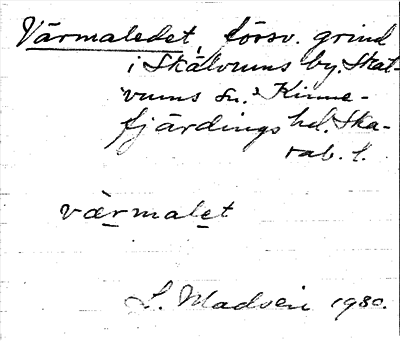 Värmaledet, försv. grind
i Skälvums by. Skal-
vums sn. Kinne-
fjärdings hd. Ska-
rab. l.
värmalet
S. Madsen 1930.